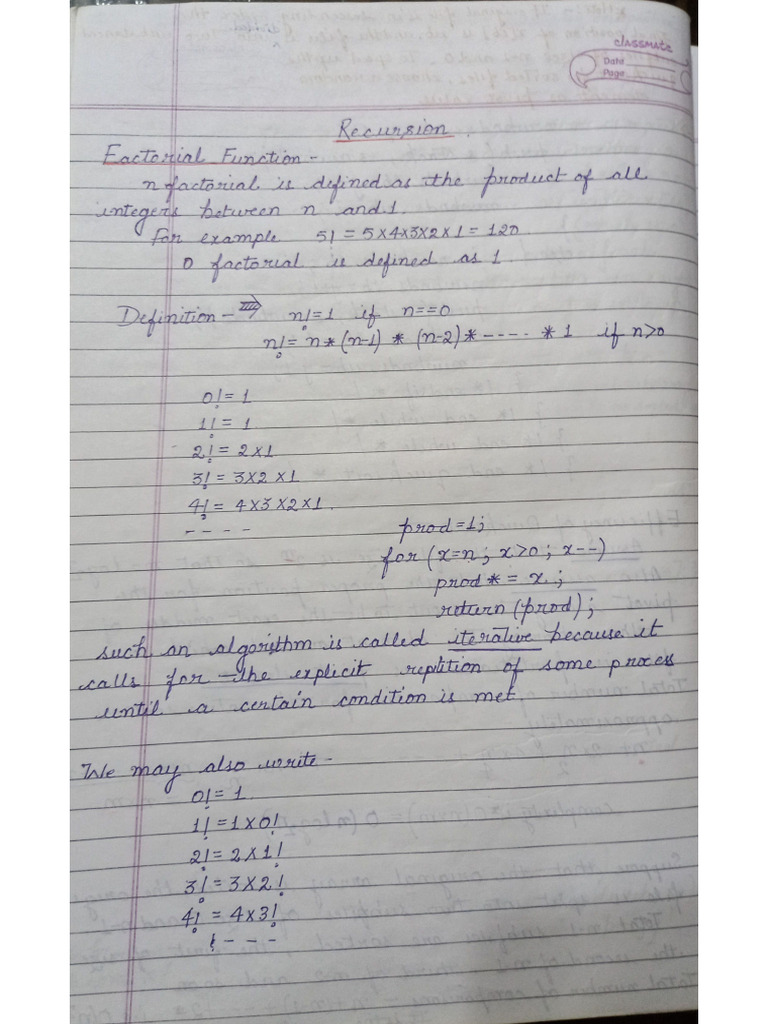 classmate
Date
Page
Recursion.
Factorial Function -
n factorial is defined as the product of all
integers between n and 1.
for example 5! = 5×4×3×2×1 = 120
0 factorial is defined as 1.
Definition - ⇒ n! = 1 if n==0
n! = n*(n-1) * (n-2)* ----- * 1 if n>0
0! = 1
1! = 1
2! = 2×1
3! = 3×2×1
4! = 4×3×2×1.
- - - -
prod =1;
for (x=n ; x>0 ; x--)
prod * = x ;
return (prod);
such an algorithm is called iterative because it
calls for the explicit reptition of some process
until a certain condition is met.
We may also write -
0! = 1
1! = 1×0!
2! = 2×1!
3! = 3×2!
4! = 4×3!
- - -